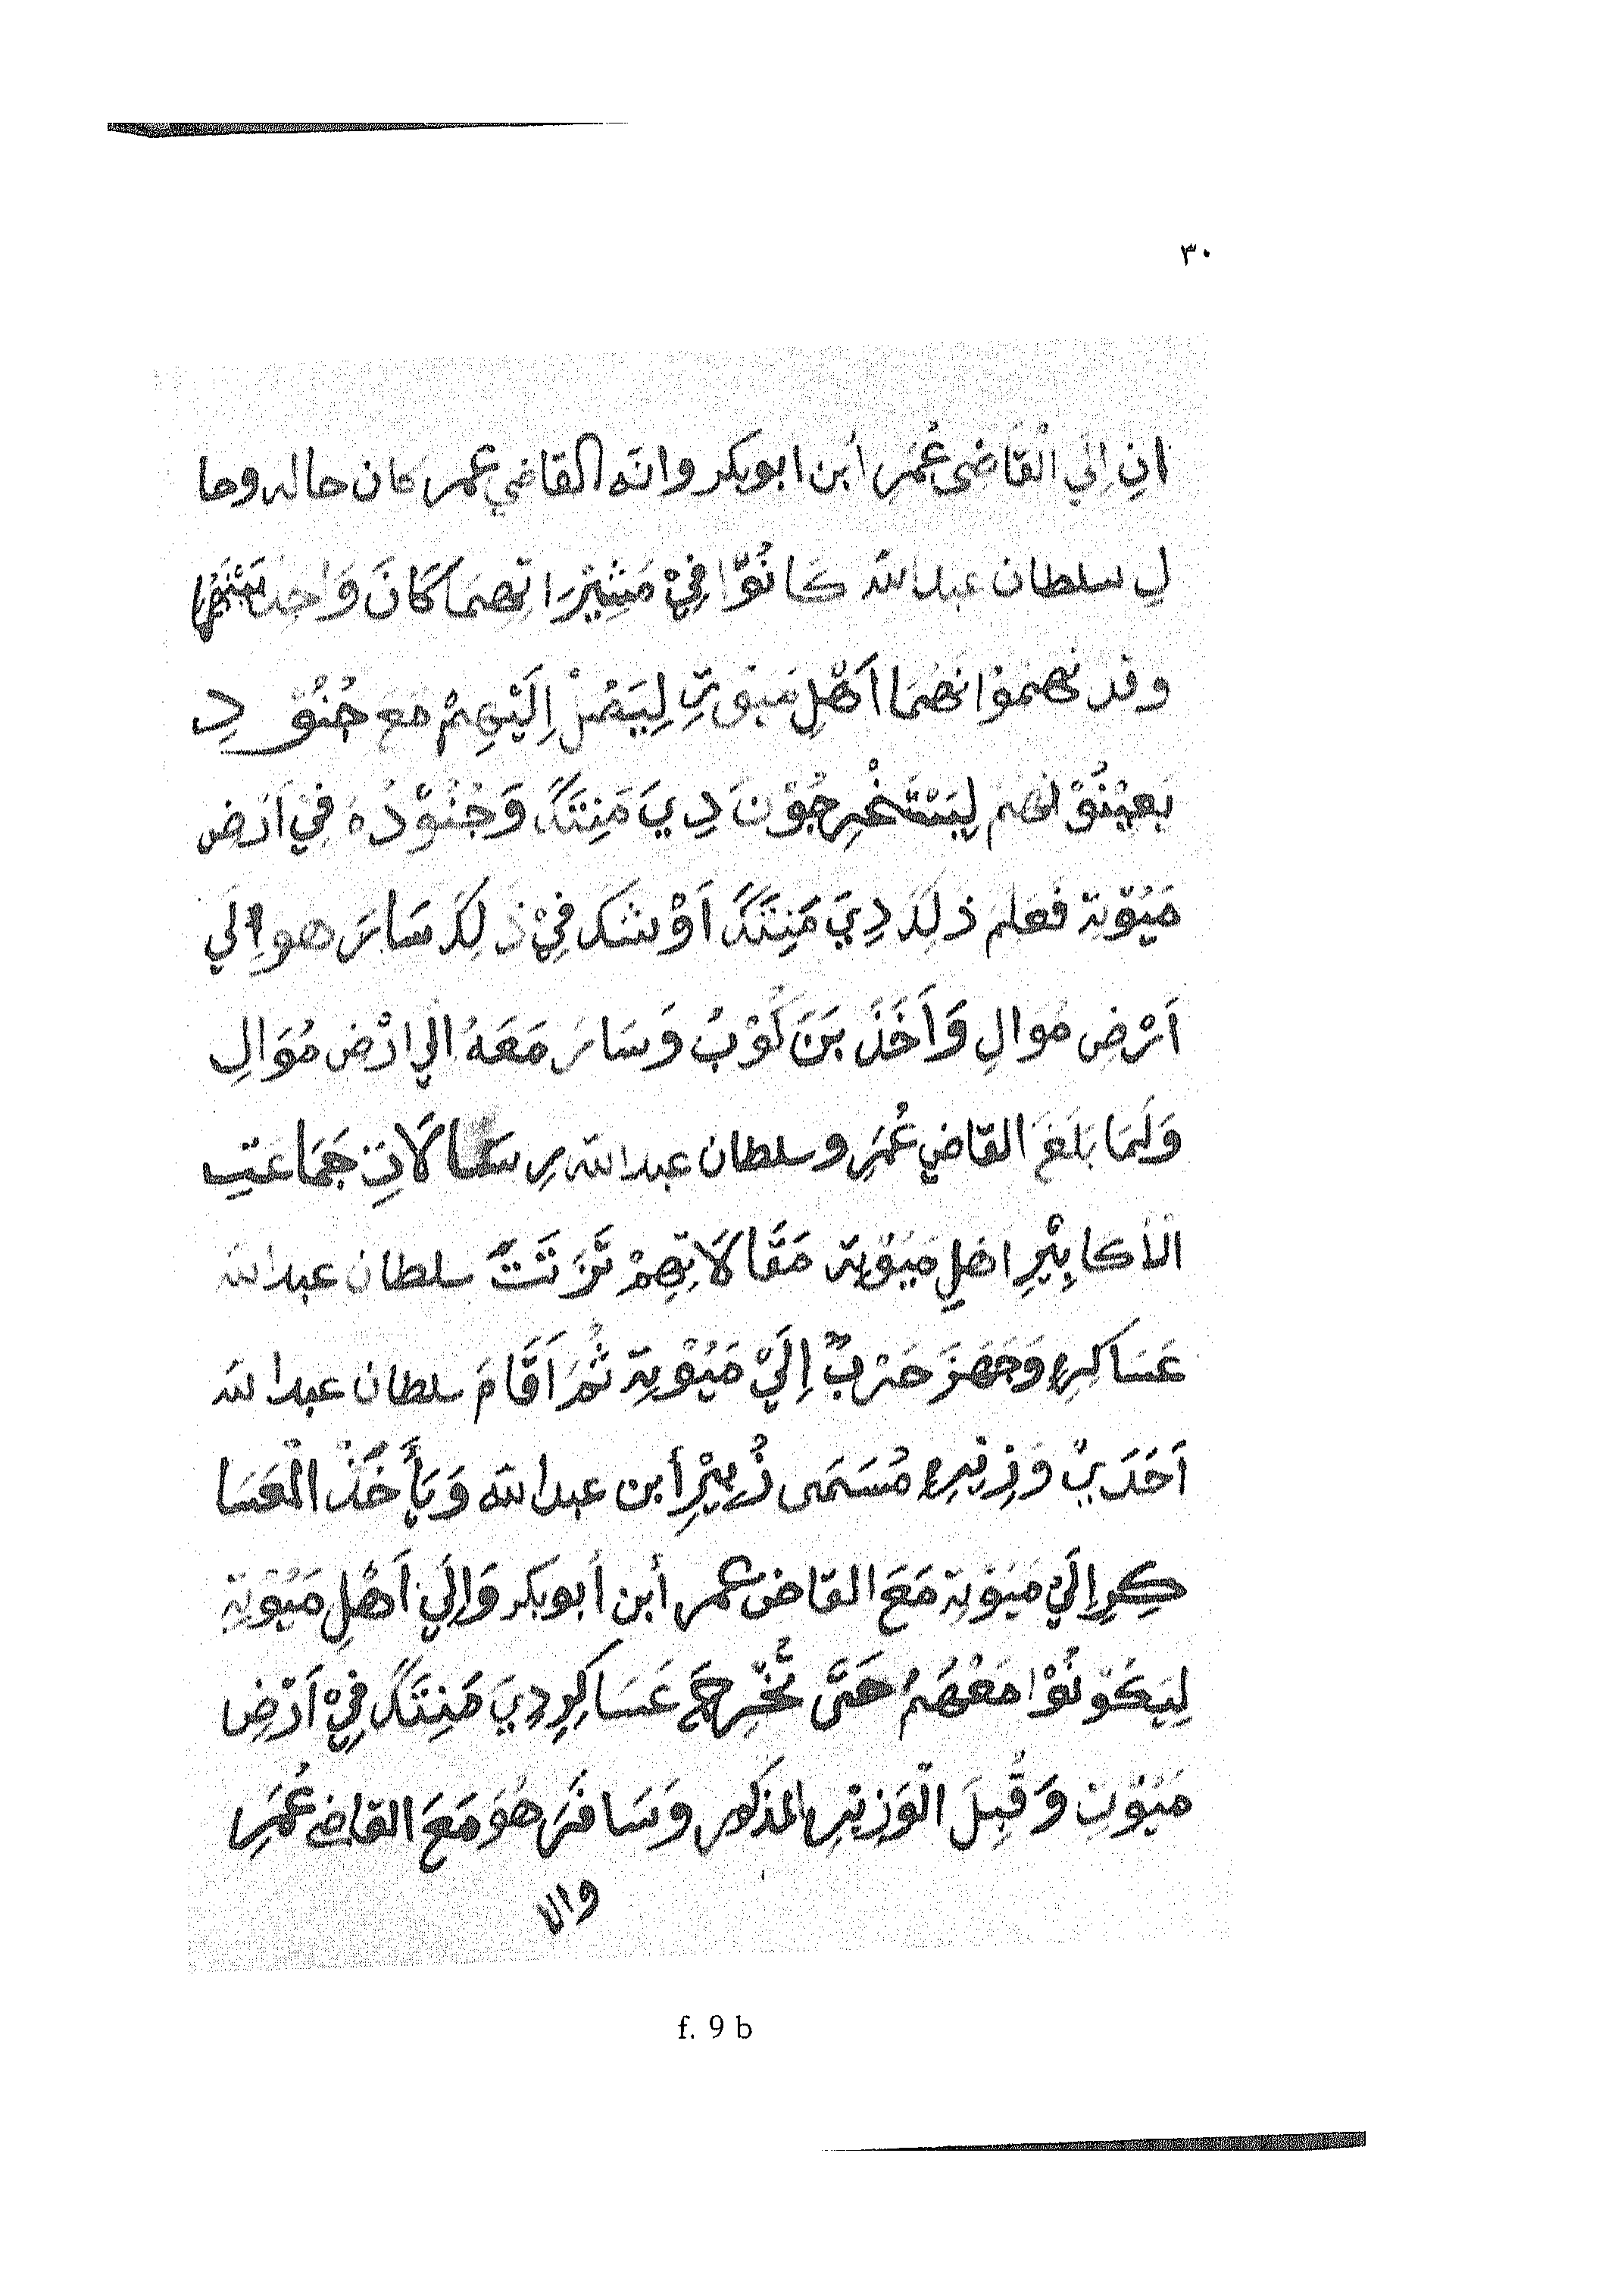 ٣٠
انِ اِلَي الْقَاضى عُمَرِ أبن ابوبكر وانّه القاضي عمر كان حاله وحا
لِ سلطان عبدالله كَانُوّا فِيْ مَثِيْرَا نِّهمَا كَانَ وَاحِدْ
وقد اَهْلِ مَيُوتِ لِيَصُلْ اِلَيْهِمْ مَعَ جُنُوْدِ
يَعِيْنُوْنهُم لِيَسْتَخْرِجُوْنَ دِيَ مَنِتَكَ وَجُنُوْدُهُ فِيْ اَرَضِ
مَيُوّتة فَعَلَم ذلِكَ دِيَ مَنِتَكَ اَوْ شَك فِيْ ذَلِكَ سَارَ هو اِلَي
اَرْضِ مُوَالِ وَاَخَذَ بَنَ كُوْبُ وَسَارَ مَعَهُ الَي ارْض مُوَالِ
وَلَمَا بَلَغَ القاضي عُمَرِ وسلطان عبدالله رِسَالَاتِ جَمَاعَتِ
الْأكَابِيْرِ اهْلِ مَيُوْتة مَقَالَاتِهِمْ تَزَتَتَ سلطان عبدالله
عَسَاكِرِهِ وَجَهَزَ حَرْبٌ اِلَيْ مَيُوْتِة ثُمَ اَقَامَ سلطان عبدالله
اَحَدَيْ وَزِيْرِهِ مُسَمَى زُبِيْرِ أبن عبدالله وَيَأَخُذْ الْعَسَا
كِرِ اِلَيْ مَيُوْتِة مَعَ القاضى عمر أبن أبوبكر وَاِلَيْ اَهْلِ مَيُوْتِة
لِيَكُوْنُوْا مَعْهُمُ حَتَّى تُخْرِج عَسَاكِرِ دِيَ مَنِتَكَ فِيْ اَرْضِ
مَيُوْتِ وَقُبِلَ الْوَزِيْرِ المذكور وَسَافَرَ هُوَ مَعَ القاضي عُمَرِ
والا
f. 9 b